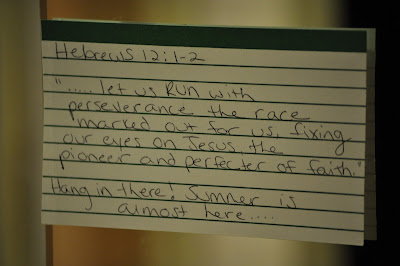 Hebrews 12:1-2
"..... let us RUN with
perseverance the race
marked out for us, fixing
our eyes on Jesus the
pioneer and perfecter of faith."
Hang in there! Summer is
almost here....